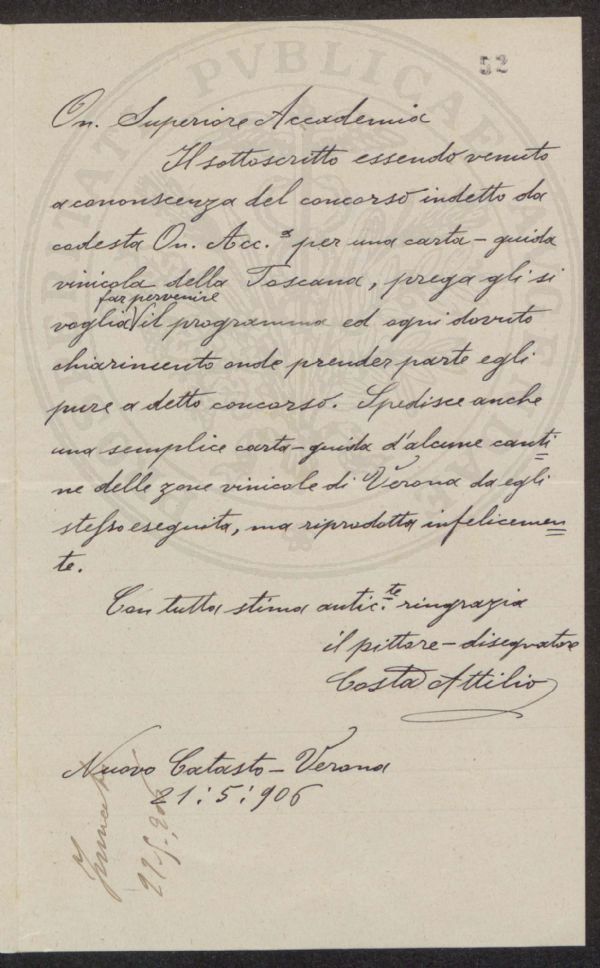 52
On. Superiore Accademia
Il sottoscritto essendo venuto
a cononscenza del concorso indetto da
codesta On. Acc.ª per una carta-guida
vinicola della Toscana, prega gli si
far pervenire
voglia il programma ed ogni dovuto
chiarimento onde prender parte egli
pure a detto concorso. Spedisce anche
una semplice carta-guida d'alcune canti=
ne delle zone vinicole di Verona da egli
stesso eseguita, ma riprodotta infelicemen=
te.
Con tutta stima antic.te ringrazia
il pittore-disegnatore
Costa Attilio
Nuovo Catasto - Verona
21:5:906